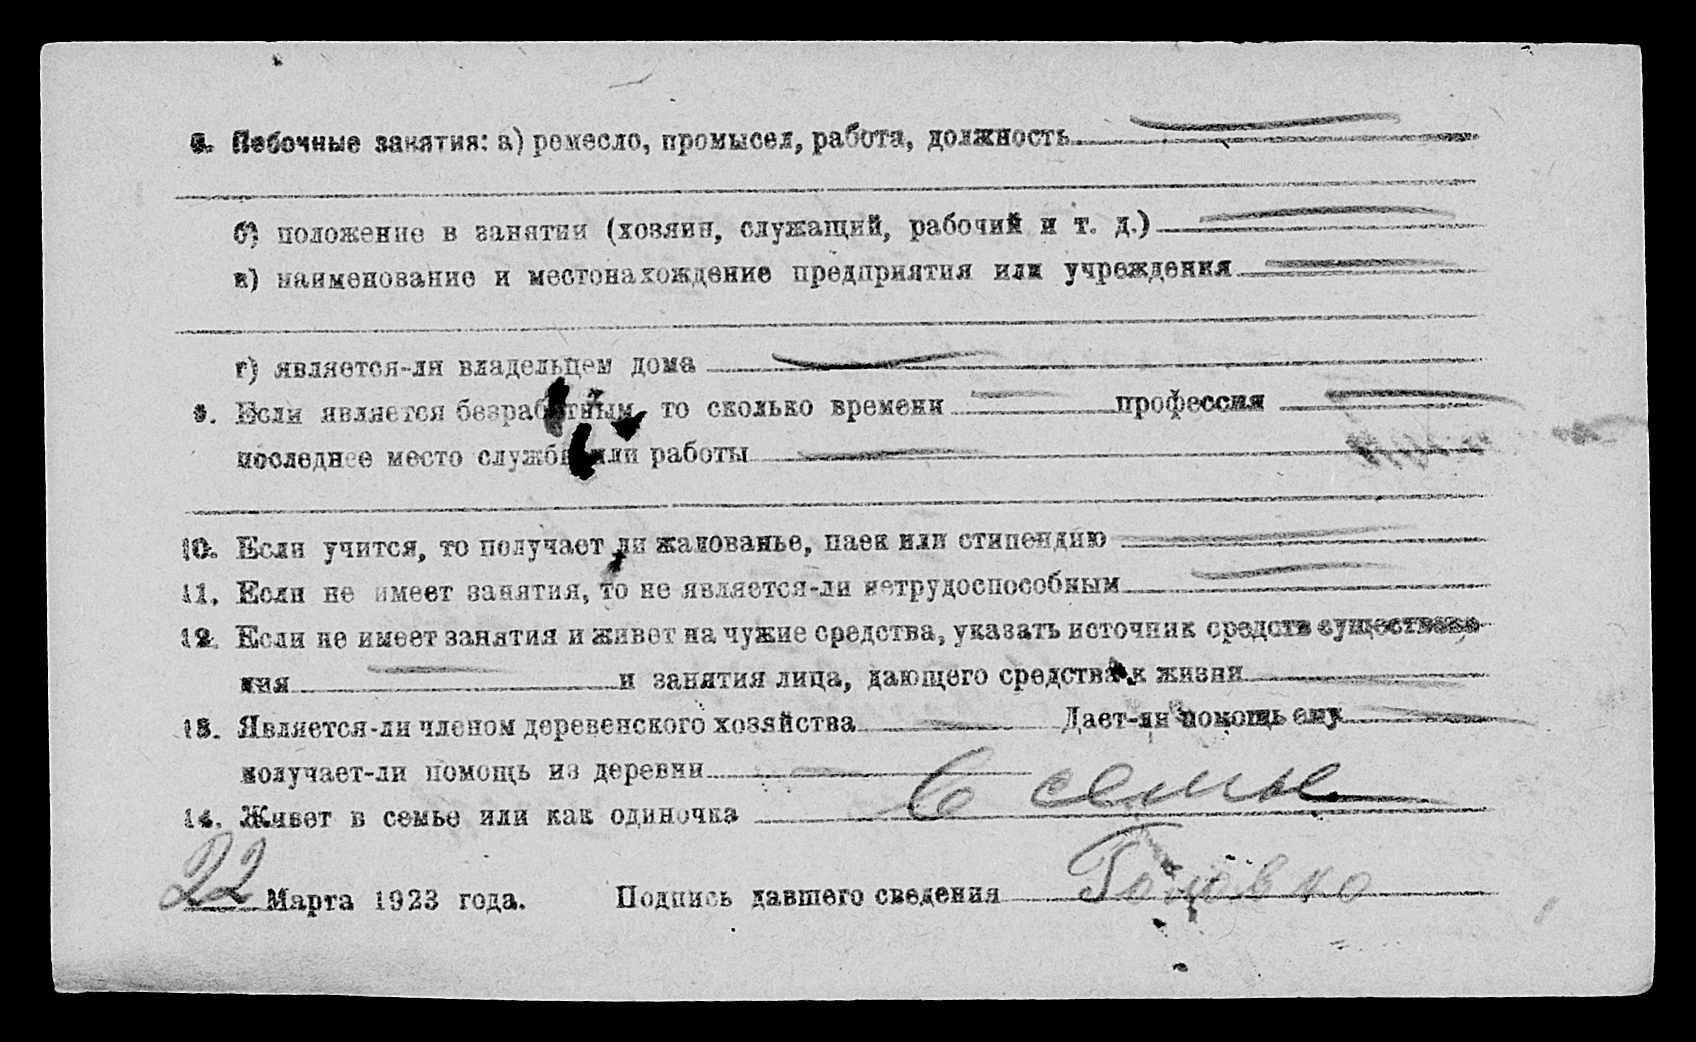 8. Побочные занятия: а) ремесло, промысел, работа, должность
б) положение в занятии (хозяин, служащий, рабочий и т. д.)
в) наименование и местонахождение предприятия или учреждения
г) является-ли владельцем дома
9. Если является безработным, то сколько времени профессия
последнее место службы или работы
10. Если учится, то получает ли жалованье, паек или стипендию
11. Если не имеет занятия, то не является-ли нетрудоспособным
12. Если не имеет занятия и живет на чужие средства, указать источник средств существова-
ния и занятия лица, дающего средства к жизни
13. Является-ли членом деревенского хозяйства Дает-ли помощь ему
получает-ли помощь из деревни
14. Живет в семье или как одиночка В семье
22 Марта 1923 года. Подпись давшего сведения Головко